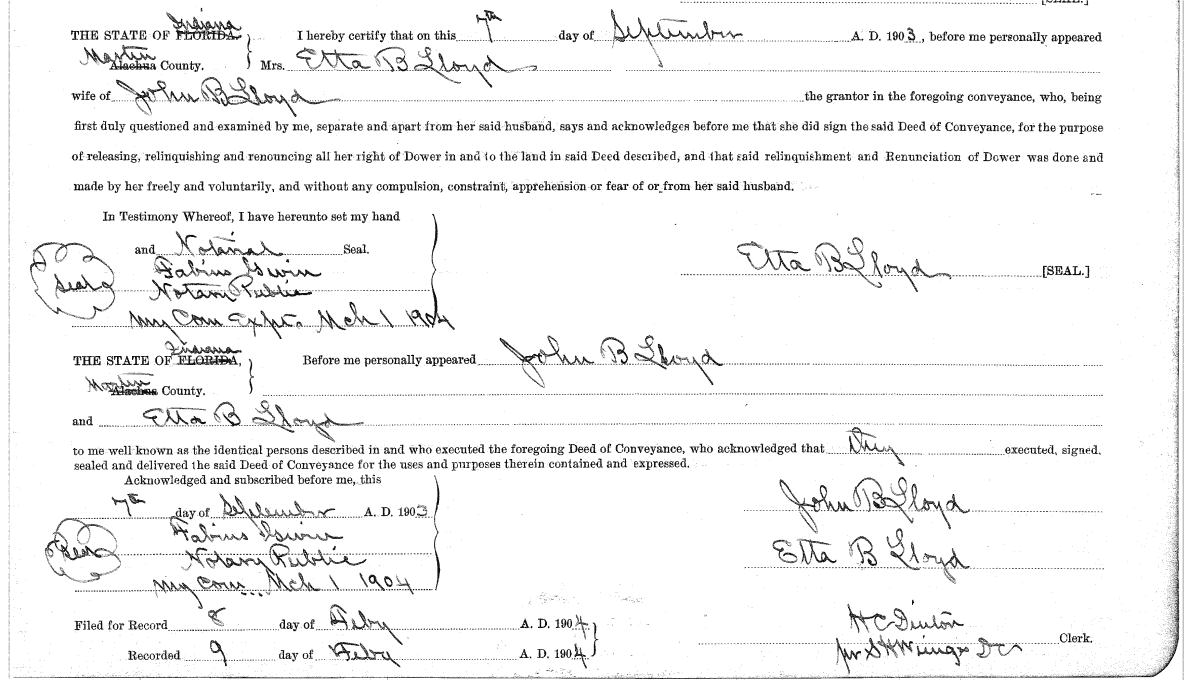 Indiana
THE STATE OF FLORIDA. I hereby certify that on this 7th day of September A. D. 1903, before me personally appeared
Martin
Alachua County. Mrs. Etta B Lloyd
wife of John B Lloyd the grantor in the foregoing conveyance, who, being
first duly questioned and examined by me, separate and apart from her said husband, says and acknowledges before me that she did sign the said Deed of Conveyance, for the purpose
of releasing, relinquishing and renouncing all her right of Dower in and to the land in said Deed described, and that said relinquishment and Renunciation of Dower was done and
made by her freely and voluntarily, and without any compulsion, constraint, apprehension or fear of or from her said husband.
In Testimony Whereof, I have hereunto set my hand
and Notarial Seal.
Seal Fabius Gwin Etta B Lloyd [SEAL.]
Notary Public
My Com Expr. Mch 1 1904
Indiana
THE STATE OF FLORIDA, Before me personally appeared John B Lloyd
Martin
Alachua County.
and Etta B Lloyd
to me well known as the identical persons described in and who executed the foregoing Deed of Conveyance, who acknowledged that they executed, signed,
sealed and delivered the said Deed of Conveyance for the uses and purposes therein contained and expressed.
Acknowledged and subscribed before me, this
7th day of September A. D. 1903 John B Lloyd
Fabius Gwin
Seal Notary Public Etta B Lloyd
My Com... Mch 1 1904
Filed for Record 8 day of Feby A. D. 1904 H C Denton
Clerk.
Recorded 9 day of Feby A. D. 1904 per S H Wienges DC